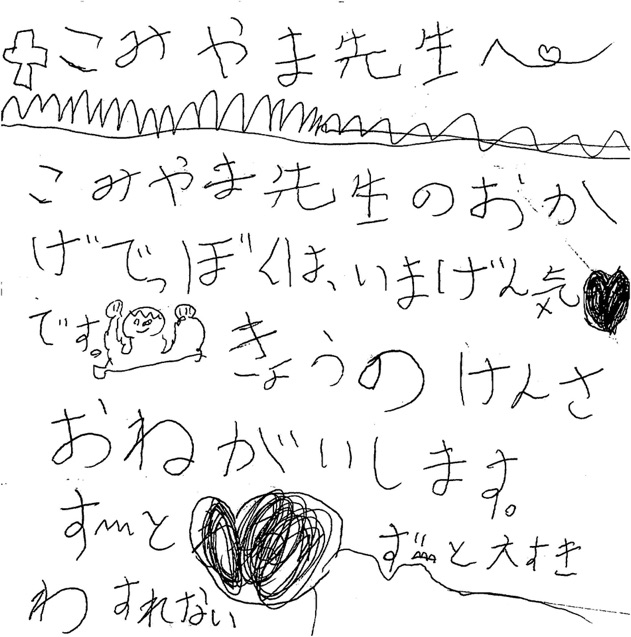 こみやま先生へ
こみやま先生のおか
げでっぼくは、いまげん気
です。きょうのけんさ
おねがいします。
すーと ずーと大すき
わすれない